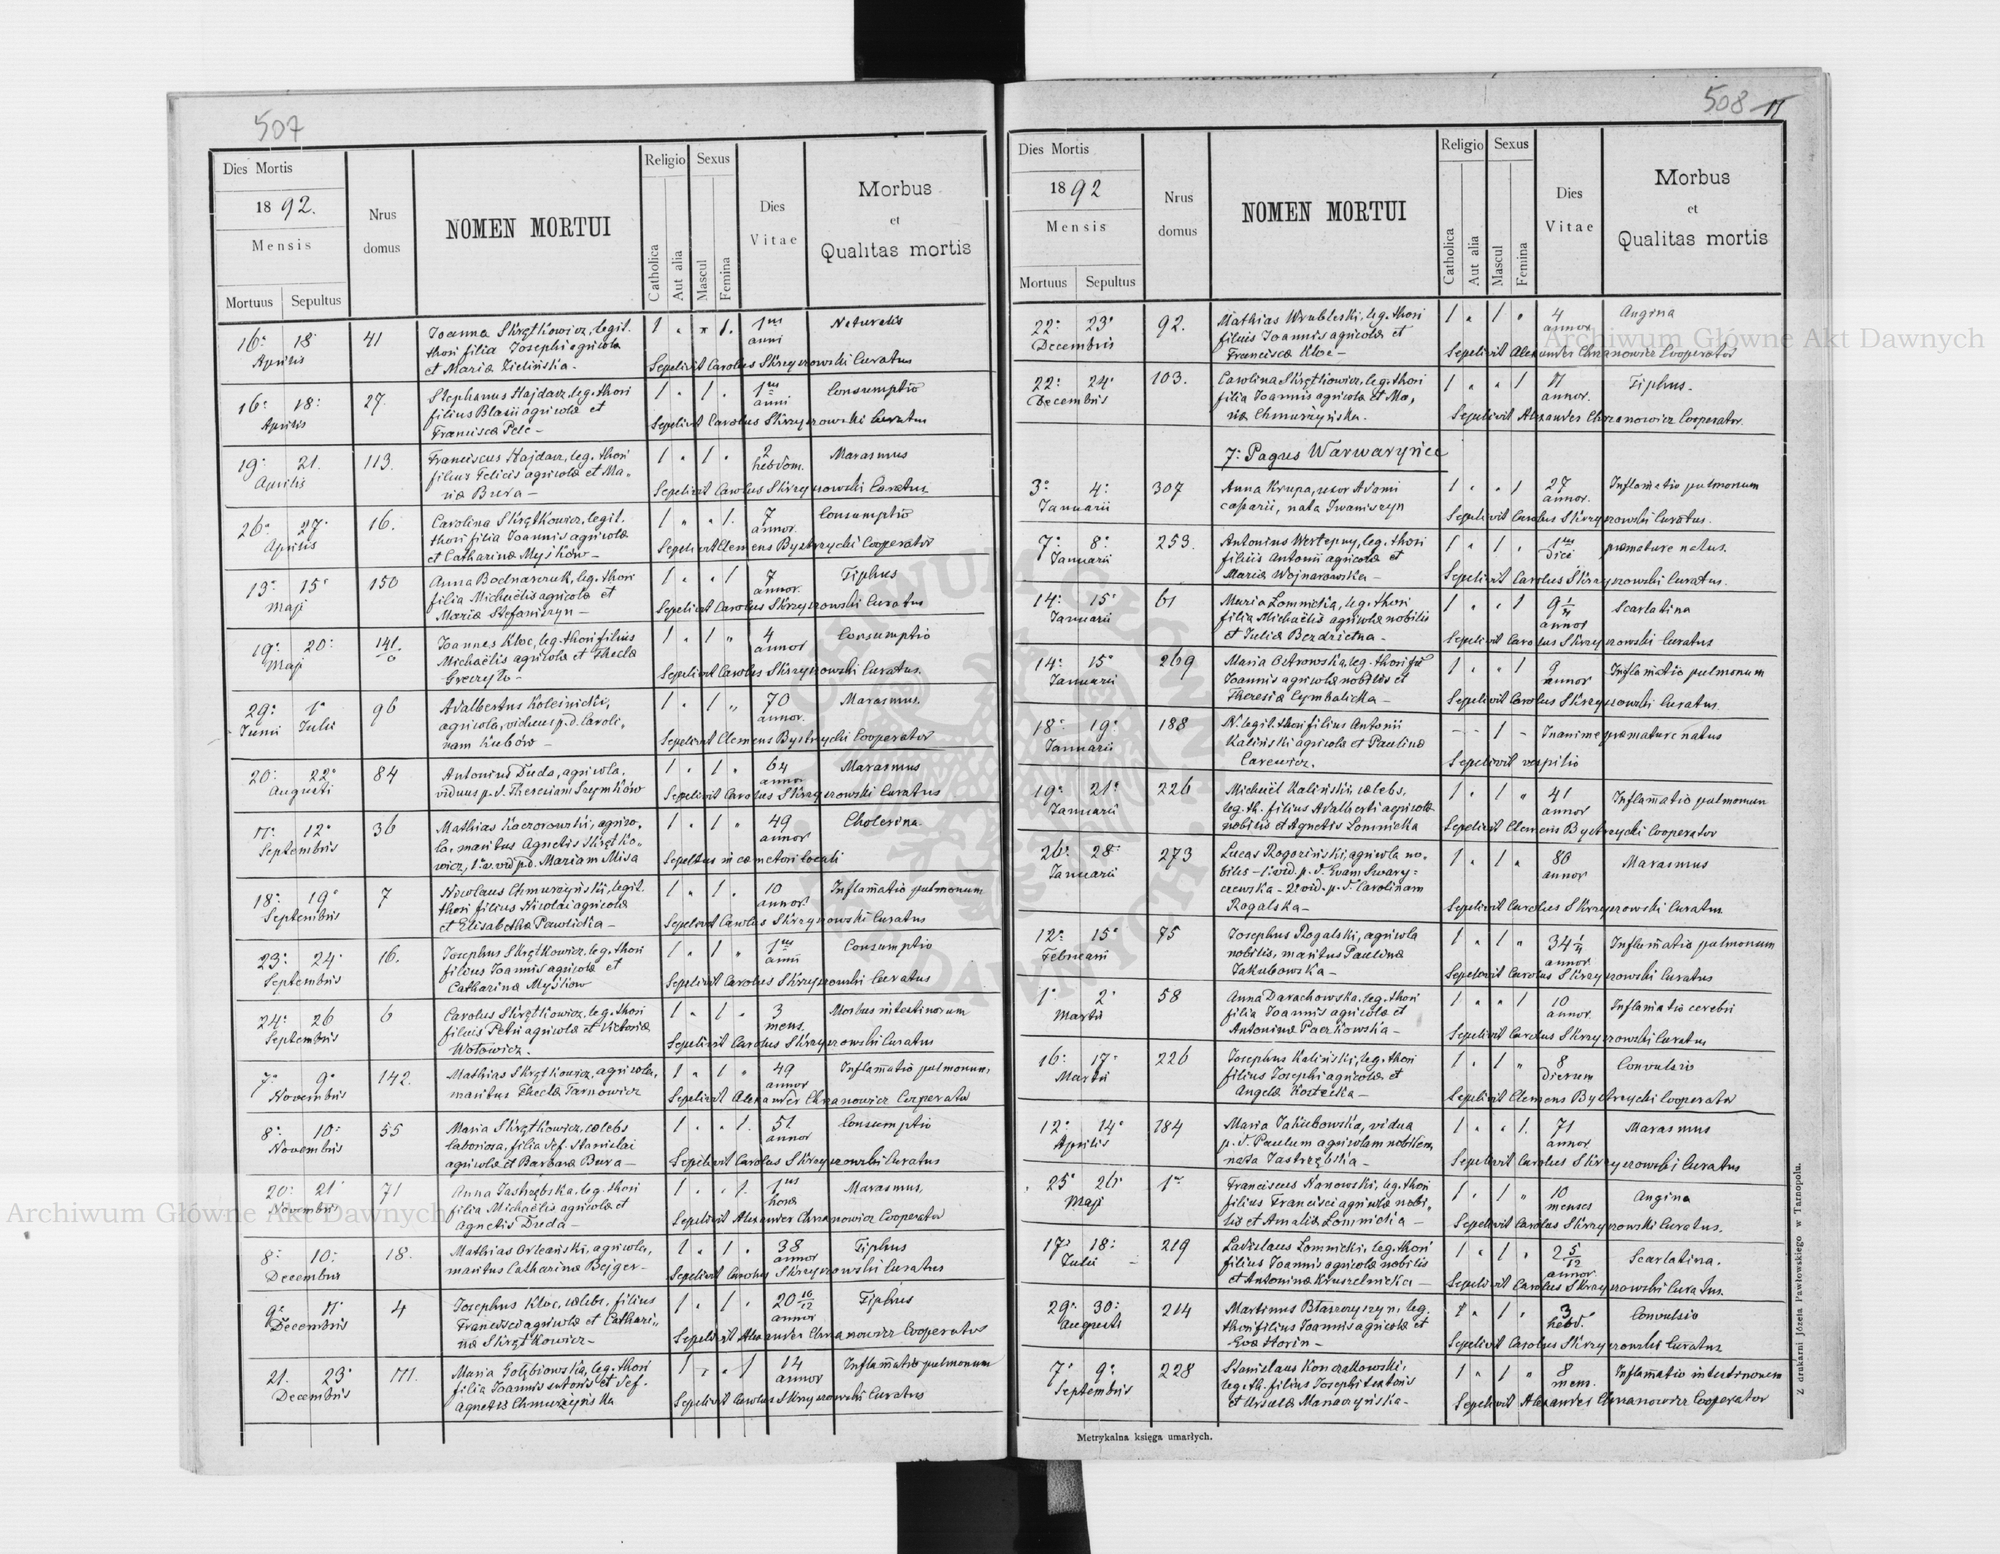 507
Dies Mortis
1892.
Mensis
Mortuus Sepultus
Nrus domus
NOMEN MORTUI
Religio
Catholica
Aut alia
Sexus
Mascul
Femina
Dies Vitae
Morbus et Qualitas mortis
16 18 41 Joanna Skrętkowicz, legit. 1 1. 1us Naturalis
Aprilis thori filia Josephi agricolae anni
et Mariae Zielińska. Sepelivit Carolus Skrzyszowski Curatus
16 18 27. Stephanus Hajdacz, leg. thori 1 1 1us Consumptio
Aprilis filius Blasii agricolae et anni
Franciscae Pelc - Sepelivit Carolus Skrzyszowski Curatus
19 21. 113. Franciscus Hajdacz, leg. thori 1 1 2 Marasmus
Aprilis filius Felicis agricolae et Ma- hebdom.
riae Bura - Sepelivit Carolus Skrzyszowski Curatus
26 27 16. Carolina Skrętkowicz, legit. 1 1. 7 Consumptio
Aprilis thori filia Joannis agricolae annor.
et Catharinae Myśków - Sepelivit Clemens Bystrzycki Cooperator
13 15 150 Anna Bodnarczuk, leg. thori 1 1 7 Tiphus
Maji filia Michaëlis agricolae et annor.
Mariae Stefaniszyn - Sepelivit Carolus Skrzyszowski Curatus
19 20 141/a Joannes Kloc, leg. thori filius 1 1 4 Consumptio
Maji Michaëlis agricolae et Theclae annor
Sepelivit Carolus Skrzyszowski Curatus.
29 1 96 Adalbertus Koleśnicki, 1 1 70 Marasmus.
Junii Julii agricola, viduus p. d. Caroli- annor.
nam Kubów - Sepelivit Clemens Bystrzycki Cooperator
20 22 84 Antonius Duda, agricola, 1 1 64 Marasmus
Augusti viduus p. d. Theresiam Szymków annor Sepelivit Carolus Skrzyszowski Curatus
11 12 36 Mathias Kaczorowski, agrico- 1 1 49 Cholerina
Septembris la, maritus Agnetis Skrętko- annor.
wicz, 1o v. vid p.d. Mariam Misa Sepultus in coemeterii locali
18 19 7 Nicolaus Chmurzyński, legit. 1 1 10 Inflamatio pulmonum
Septembris thori filius Nicolai agricolae annor.
et Elisabethae Pawlicka - Sepelivit Carolus Skrzyszowski Curatus
23 24 16. Josephus Skrętkowicz, leg. thori 1 1 1us Consumptio
Septembris filius Joannis agricolae et anni
Catharinae Myśków Sepelivit Carolus Skrzyszowski Curatus
24 26 6 Carolus Skrętkowicz, leg. thori 1 1 3 Morbus intestinorum
Septembris filius Petri agricolae et Victoriae mens.
Wołowicz. Sepelivit Carolus Skrzyszowski Curatus
7 9 142. Mathias Skrętkowicz, agricola, 1 1 49 Inflamatio pulmonum,
Novembris maritus Theclae Tarnowicz annor Sepelivit Alexander Chrzanowicz Cooperator
8 10 55 Maria Skrętkowicz, caelebs 1 1. 51 Consumptio
Novembris laboriosa, filia def. Stanislai annor
agricolae et Barbarae Bura - Sepelivit Carolus Skrzyszowski Curatus
20 21 71 Anna Jastrzębska, leg. thori 1 1. 1us Marasmus,
Novembris filia Michaëlis agricolae et hora
Agnetis Duda - Sepelivit Alexander Chrzanowicz Cooperator
8 10 18. Mathias Orleański, agricola, 1 1 38 Tiphus
Decembris maritus Catharinae Bejger - annor Sepelivit Carolus Skrzyszowski Curatus
9 11 4 Josephus Kloc, caelebs, filius 1 1 20 10/12 Tiphus
Decembris Francisci agricolae et Cathari- annor
nae Skrętkowicz - Sepelivit Alexander Chrzanowicz Cooperator
21. 23 171. Maria Gołębiowska, leg. thori 1 1 14 Inflamatio pulmonum
Decembris filia Joannis sutoris et def. annor
Agnetis Chmurzyńska Sepelivit Carolus Skrzyszowski Curatus
508
Dies Mortis
1892
Mensis
Mortuus Sepultus
Nrus domus
NOMEN MORTUI
Religio
Catholica
Aut alia
Sexus
Mascul
Femina
Dies Vitae
Morbus et Qualitas mortis
22 23 92. Mathias Wrubleski, leg. thori 1 1 4 Angina
Decembris filius Joannis agricolae et annor
Franciscae Kloc - Sepelivit Alexander Chrzanowicz Cooperator
22 24 103. Carolina Skrętkowicz, leg. thori 1 1 11 Tiphus.
Decembris filia Joannis agricolae et Ma- annor.
riae Chmurzyńska. Sepelivit Alexander Chrzanowicz Cooperator.
7. Pagus Warwaryńce
3 4 307 Anna Krupa, uxor Adami 1 1 27 Inflamatio pulmonum
Januarii caesarii, nata Iwaniszyn annor. Sepelivit Carolus Skrzyszowski Curatus.
7 8 253. Antonius Wertepny, leg. thori 1 1 1us praemature natus.
Januarii filius Antonii agricolae et diei
Mariae Wojnarowska - Sepelivit Carolus Skrzyszowski Curatus.
14 15 61 Maria Łomnicka, leg. thori 1 1 9 Scarlatina
Januarii filia Michaëlis agricolae nobilis annor
et Juliae Bezdzietna - Sepelivit Carolus Skrzyszowski Curatus
14 15 269 Maria Ostrowska, leg. thori fil 1 1 9 Inflamatio pulmonum
Januarii Joannis agricolae nobilis et annor
Theresiae Cymbalicka - Sepelivit Carolus Skrzyszowski Curatus.
18 19 188 N. legit. thori filius Antonii - - 1 - Inanime praemature natus
Januarii Kaliński agricolae et Paulinae
Carewicz. Sepelivit vespilio
19 21 226 Michaël Kaliński, caelebs, 1 1 41 Inflamatio pulmonum
Januarii leg. th. filius Adalberti agricolae annor
nobilis et Agnetis Łomnicka Sepelivit Clemens Bystrzycki Cooperator
26 28 273 Lucas Rogoziński, agricola no- 1 1 80 Marasmus
Januarii bilis - 1o vid. p. d. Evam Swary- annor
czewska - 2o vid. p. d. Carolinam
Rogalska - Sepelivit Carolus Skrzyszowski Curatus
12 15 75 Josephus Rogalski, agricola 1 1 34 Inflamatio pulmonum
Februarii nobilis, maritus Paulinae annor
Jakubowska - Sepelivit Carolus Skrzyszowski Curatus
1 2 58 Anna Darachowska, leg. thori 1 1 10 Inflamatio cerebri
Martii filia Joannis agricolae et annor.
Antoninae Paczkowska - Sepelivit Carolus Skrzyszowski Curatus
16 17 226 Josephus Kaliński, leg. thori 1 1 8 Convulsio
Martii filius Josephi agricolae et dierum
Angelae Kostecka - Sepelivit Clemens Bystrzycki Cooperator
12 14 184 Maria Jakubowska, vidua 1 1. 71 Marasmus
Aprilis p. d. Paulum agricolam nobilem, annor
nata Jastrzębska - Sepelivit Carolus Skrzyszowski Curatus
25 26 1 Franciscus Nanowski, leg. thori 1 1 10 Angina
Maji filius Francisci agricolae nobi- menses
lis et Amaliae Łomnicka - Sepelivit Carolus Skrzyszowski Curatus.
17 18 219 Ladislaus Łomnicki, leg. thori 1 1 2 5/12 Scarlatina.
Julii filius Joannis agricolae nobilis annor
et Antoninae Kruszelnicka - Sepelivit Carolus Skrzyszowski Curatus.
29 30 214 Martinus Błaszczyszyn, leg. 1 1 3 Convulsio
Augusti thori filius Joannis agricolae et hebd.
Evae Horin - Sepelivit Carolus Skrzyszowski Curatus
7 9 228 Stanislaus Konczakowski, 1 1 8 Inflamatio intestinorum
Septembris leg. th. filius Josephi textoris mens.
et Ursulae Manaczyńska - Sepelivit Alexander Chrzanowicz Cooperator
Metrykalna księga umarłych.
Z drukarni Józefa Pawłowskiego w Tarnopolu.
Archiwum Główne Akt Dawnych
Archiwum Główne Akt Dawnych
ARCHIWUM GŁÓWNE AKT DAWNYCH